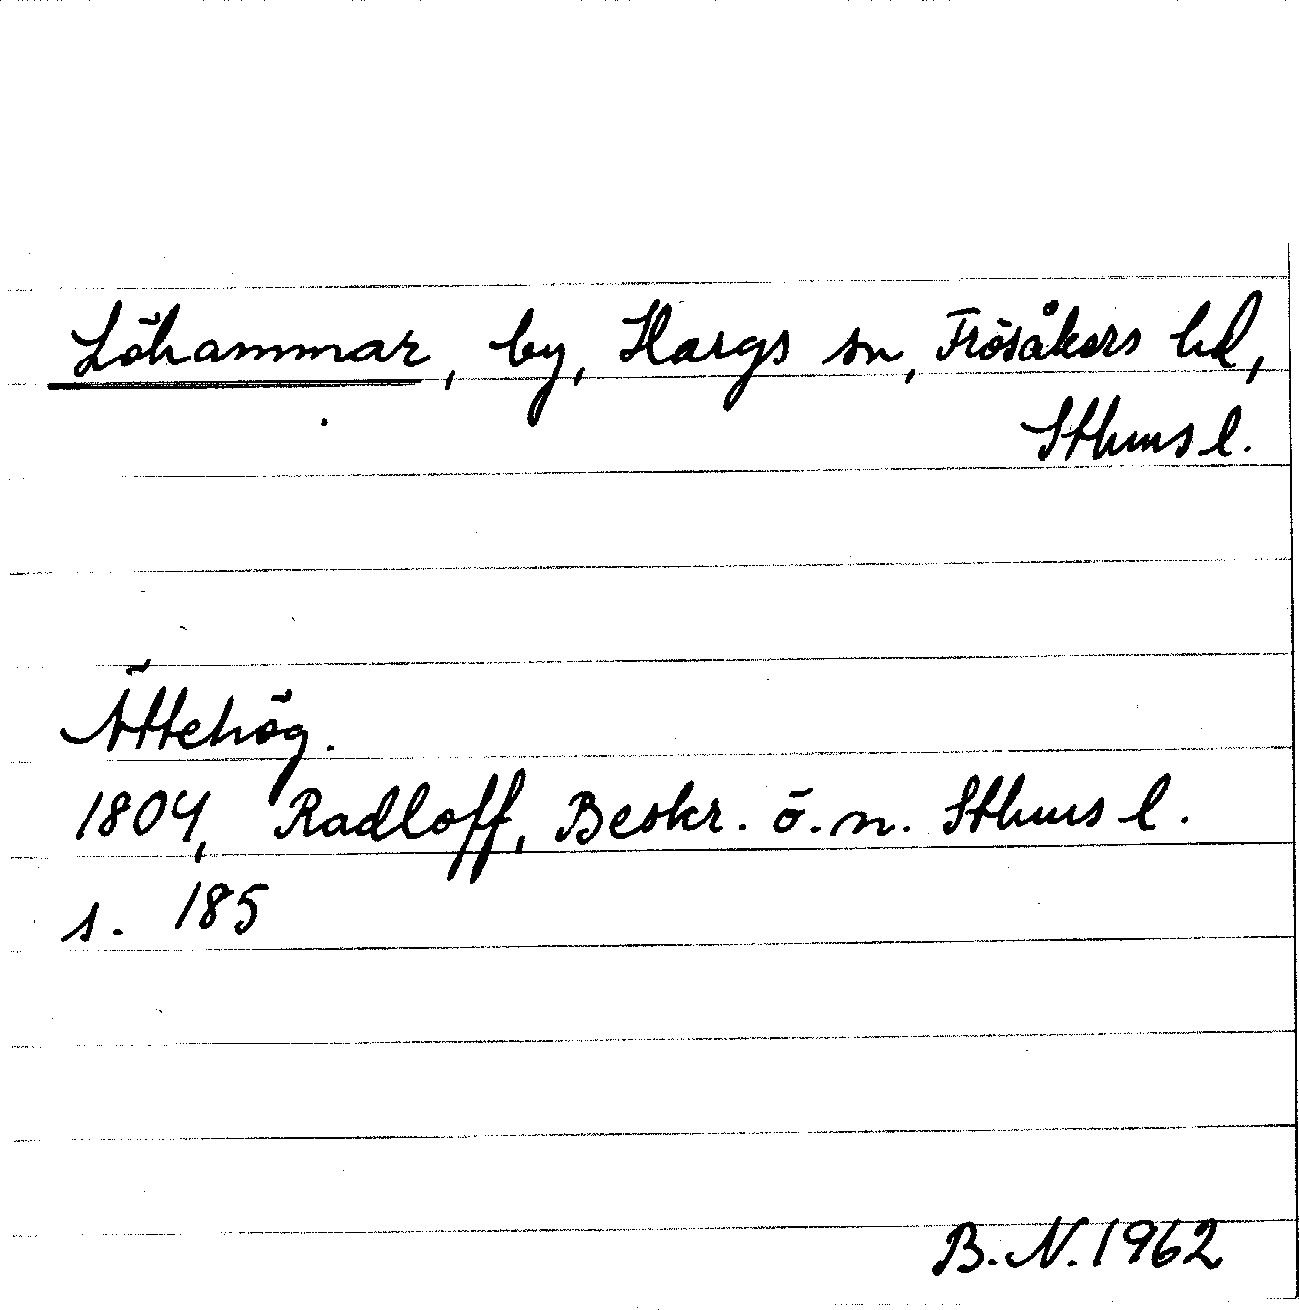 Löhammar, by, Hargs sn, Frösåkers hd,
Sthms l.
Ättehög.
1804, Radloff, Beskr. ö. n. Sthms l.
s. 185
B. N. 1962